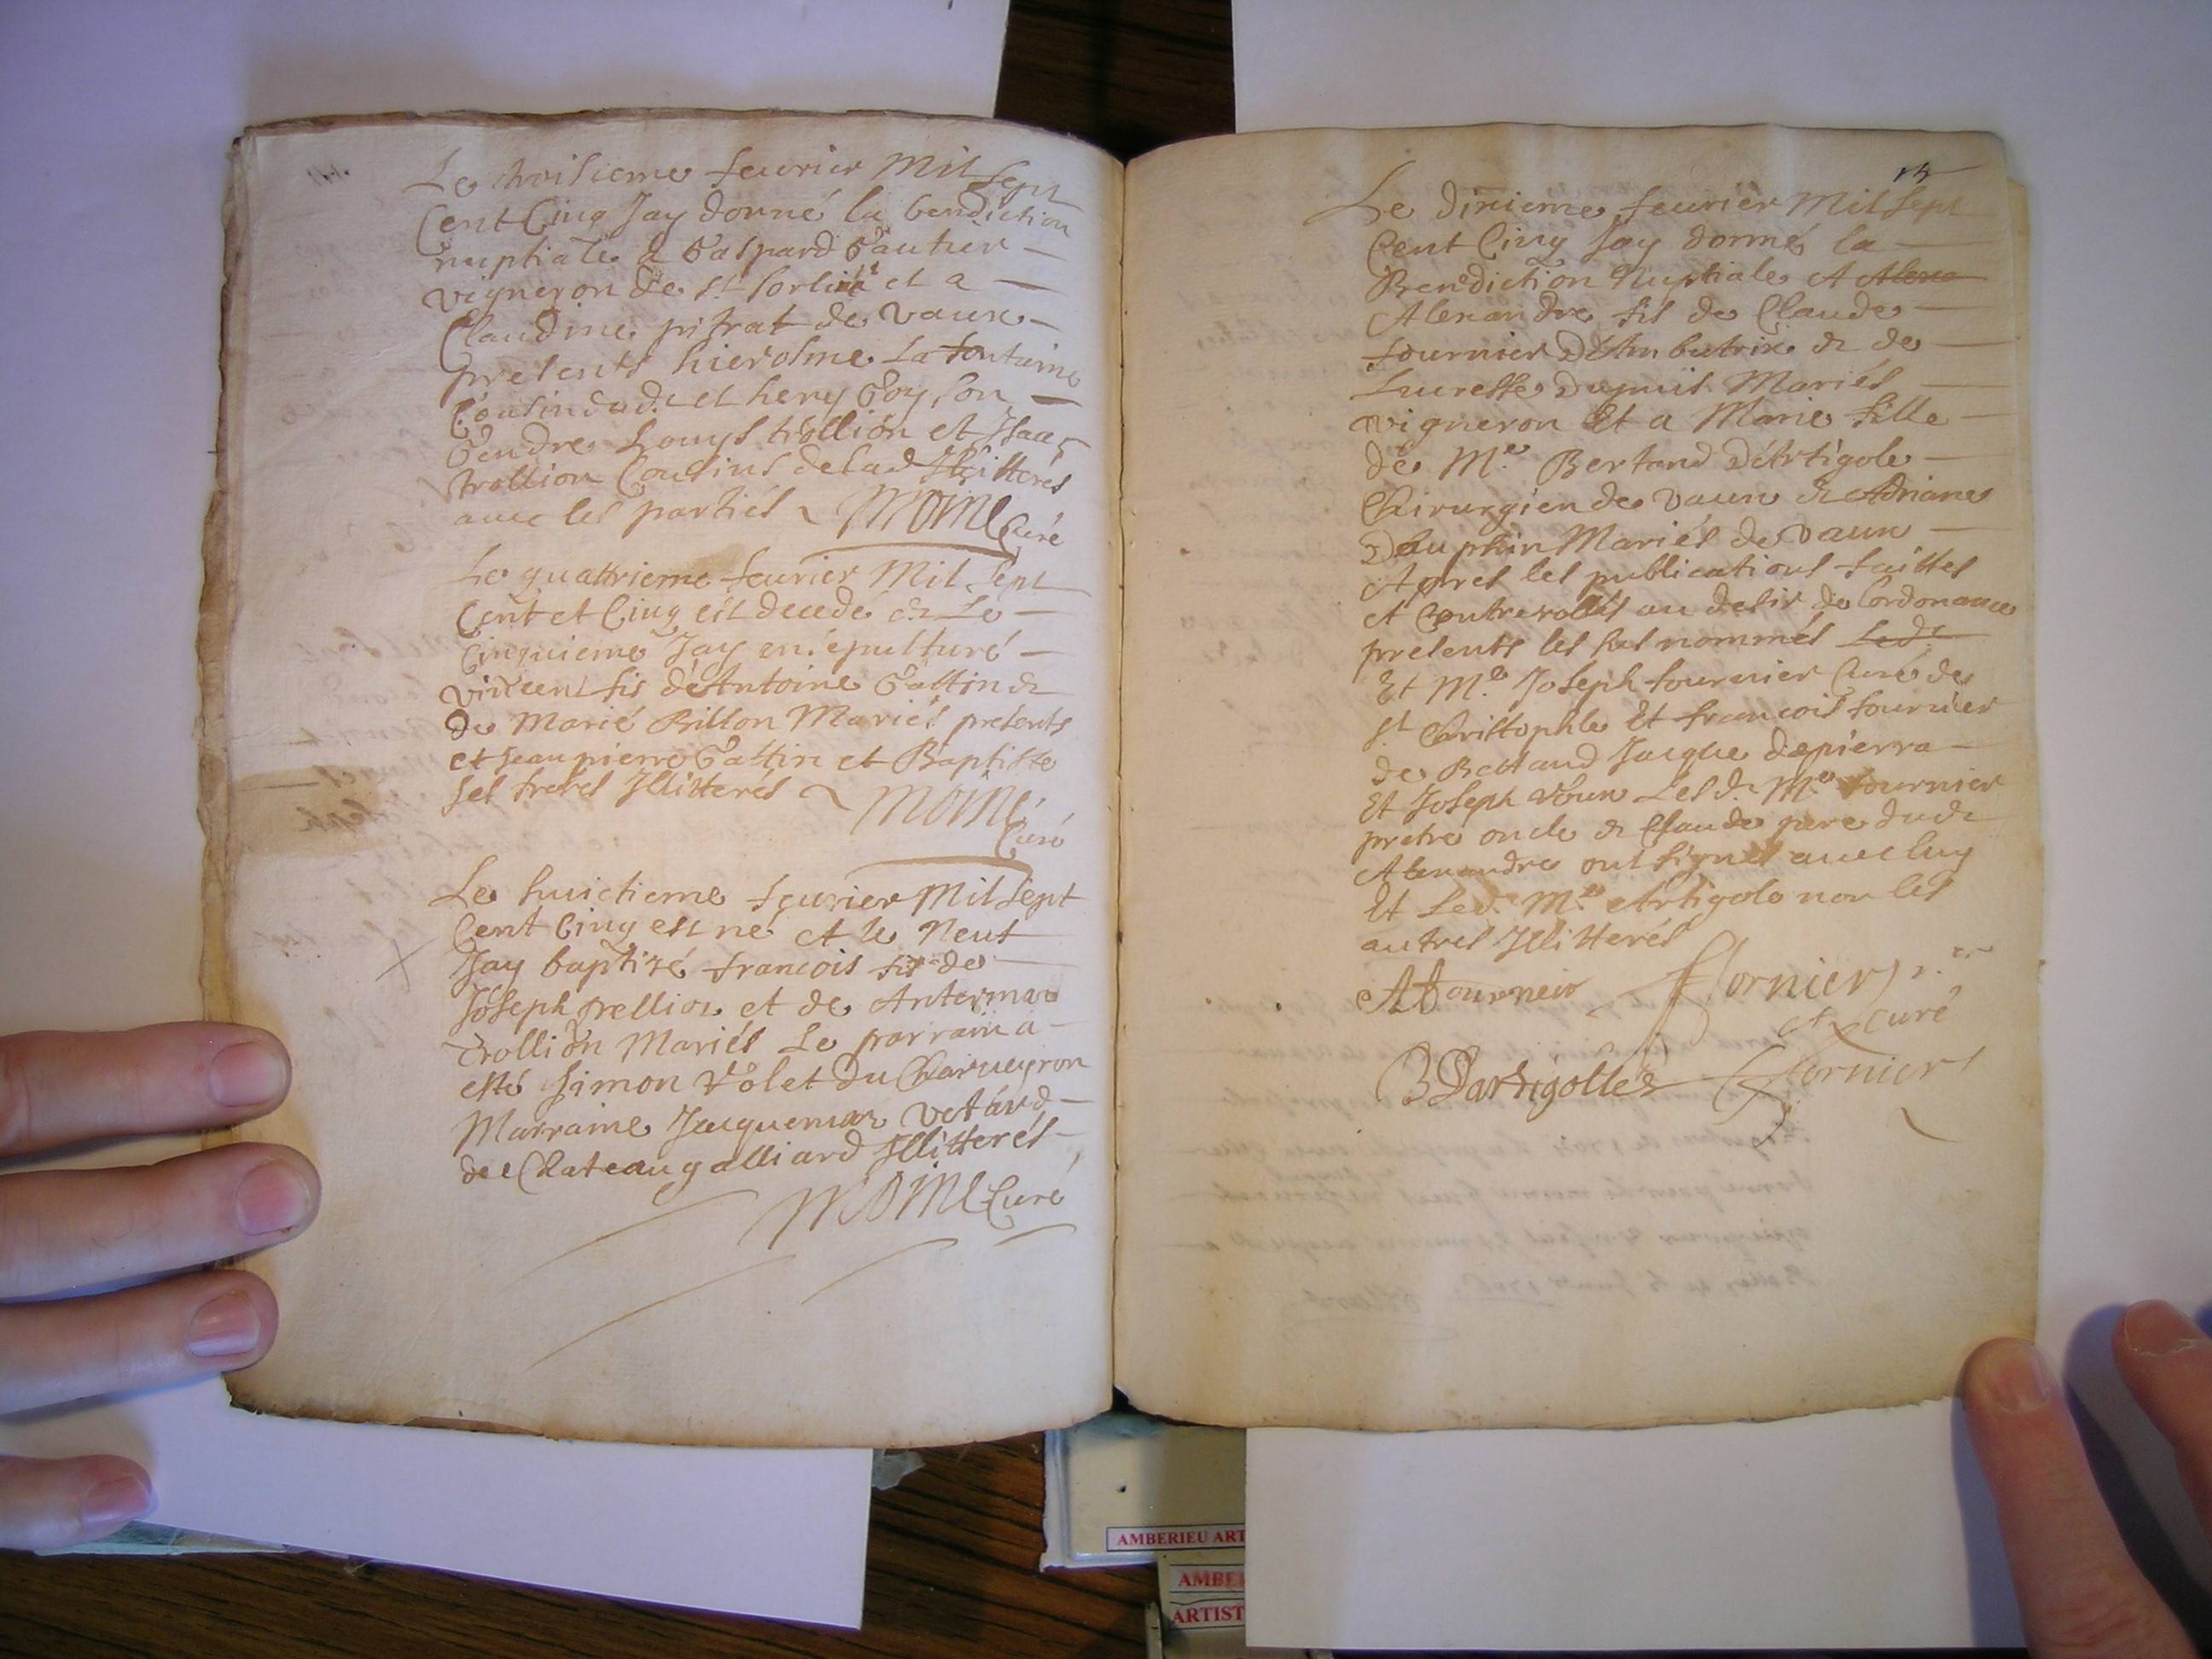 Le troisieme feurier Mil Sept
Cent Cinq Jay donné la benediction
nuptiale a Gaspard Gautier
vigneron de St Sorlin et a
Claudine pitrat de vaux
presents hierosme La fontaine
Cousin dud. et heny Goy son
Gendre Louys trollion et Isaac
trollion Cousins de lad Illitterés
auec les partiés Moine Curé
Le quattrieme feurier Mil Sept
Cent et Cinq est decede & Le
Cinquieme Jay enséepulturé
vincent fis d'Antoine Gattin &
de Marie Billon Mariés presents
et Jean pierre Gattin et Baptiste
ses freres Illitterés Moine
Curé
Le huictieme feurier Mil Sept
Cent Cinq est né et le Neuf
Jay baptizé francois fis de
Joseph grellion et de Antermaz
Trollion Mariés Le parrain a
esté Simon Volet du Charueyron
Marraine Jacquemaz
de Chateaugalliard Illitterés
Moine Curé
Le dixieme feurier Mil Sept
Cent Cinq Jay donné la
Benediction Nuptiale A Alexa
Alexandre fis de Claude
fournier D'Ambutrix & de
Lucresse Dupuis Mariés
vigneron Et a Marie fille
de Me Bertand D'Artigole
Chirurgien de vaux & Adriane
Dauphin Mariés de vaux
Apres les publications faittes
et Contrerollés au desir de Lordonance
presents les sus nommés Led
Et Me Joseph fournier Curé de
St Christophle Et francois fournier
de Bettand Jacque depierra
Et Joseph Les d. Me fournier
pretre oncle & Claude pere dud
Alexandre ont signés auec luy
Et Led. Me Artigole non les
autres Illitterés
A fournier fornier
et curé
B Dartigolles fornier
AMBERIEU ART
AMBE
ARTIST